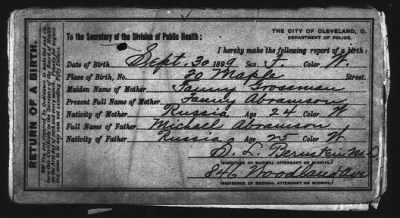 THE CITY OF CLEVELAND, O.
DEPARTMENT OF POLICE.
To the Secretary of the Division of Public Health:
I hereby make the following report of a birth:
Date of Birth Sept. 30 1899 Sex F. Color W.
Place of Birth, No. 20 Maple Street.
Maiden Name of Mother Fanny Grossman
Present Full Name of Mother Fanny Abramson
Nativity of Mother Russia Age 24 Color W
Full Name of Father Michael Abramson
Nativity of Father Russia Age 25 Color W
S. L. Bernstein M.D.
(SIGNATURE OF MEDICAL ATTENDANT OR MIDWIFE)
846 Woodland Ave
(RESIDENCE OF MEDICAL ATTENDANT OR MIDWIFE)
RETURN OF A BIRTH.